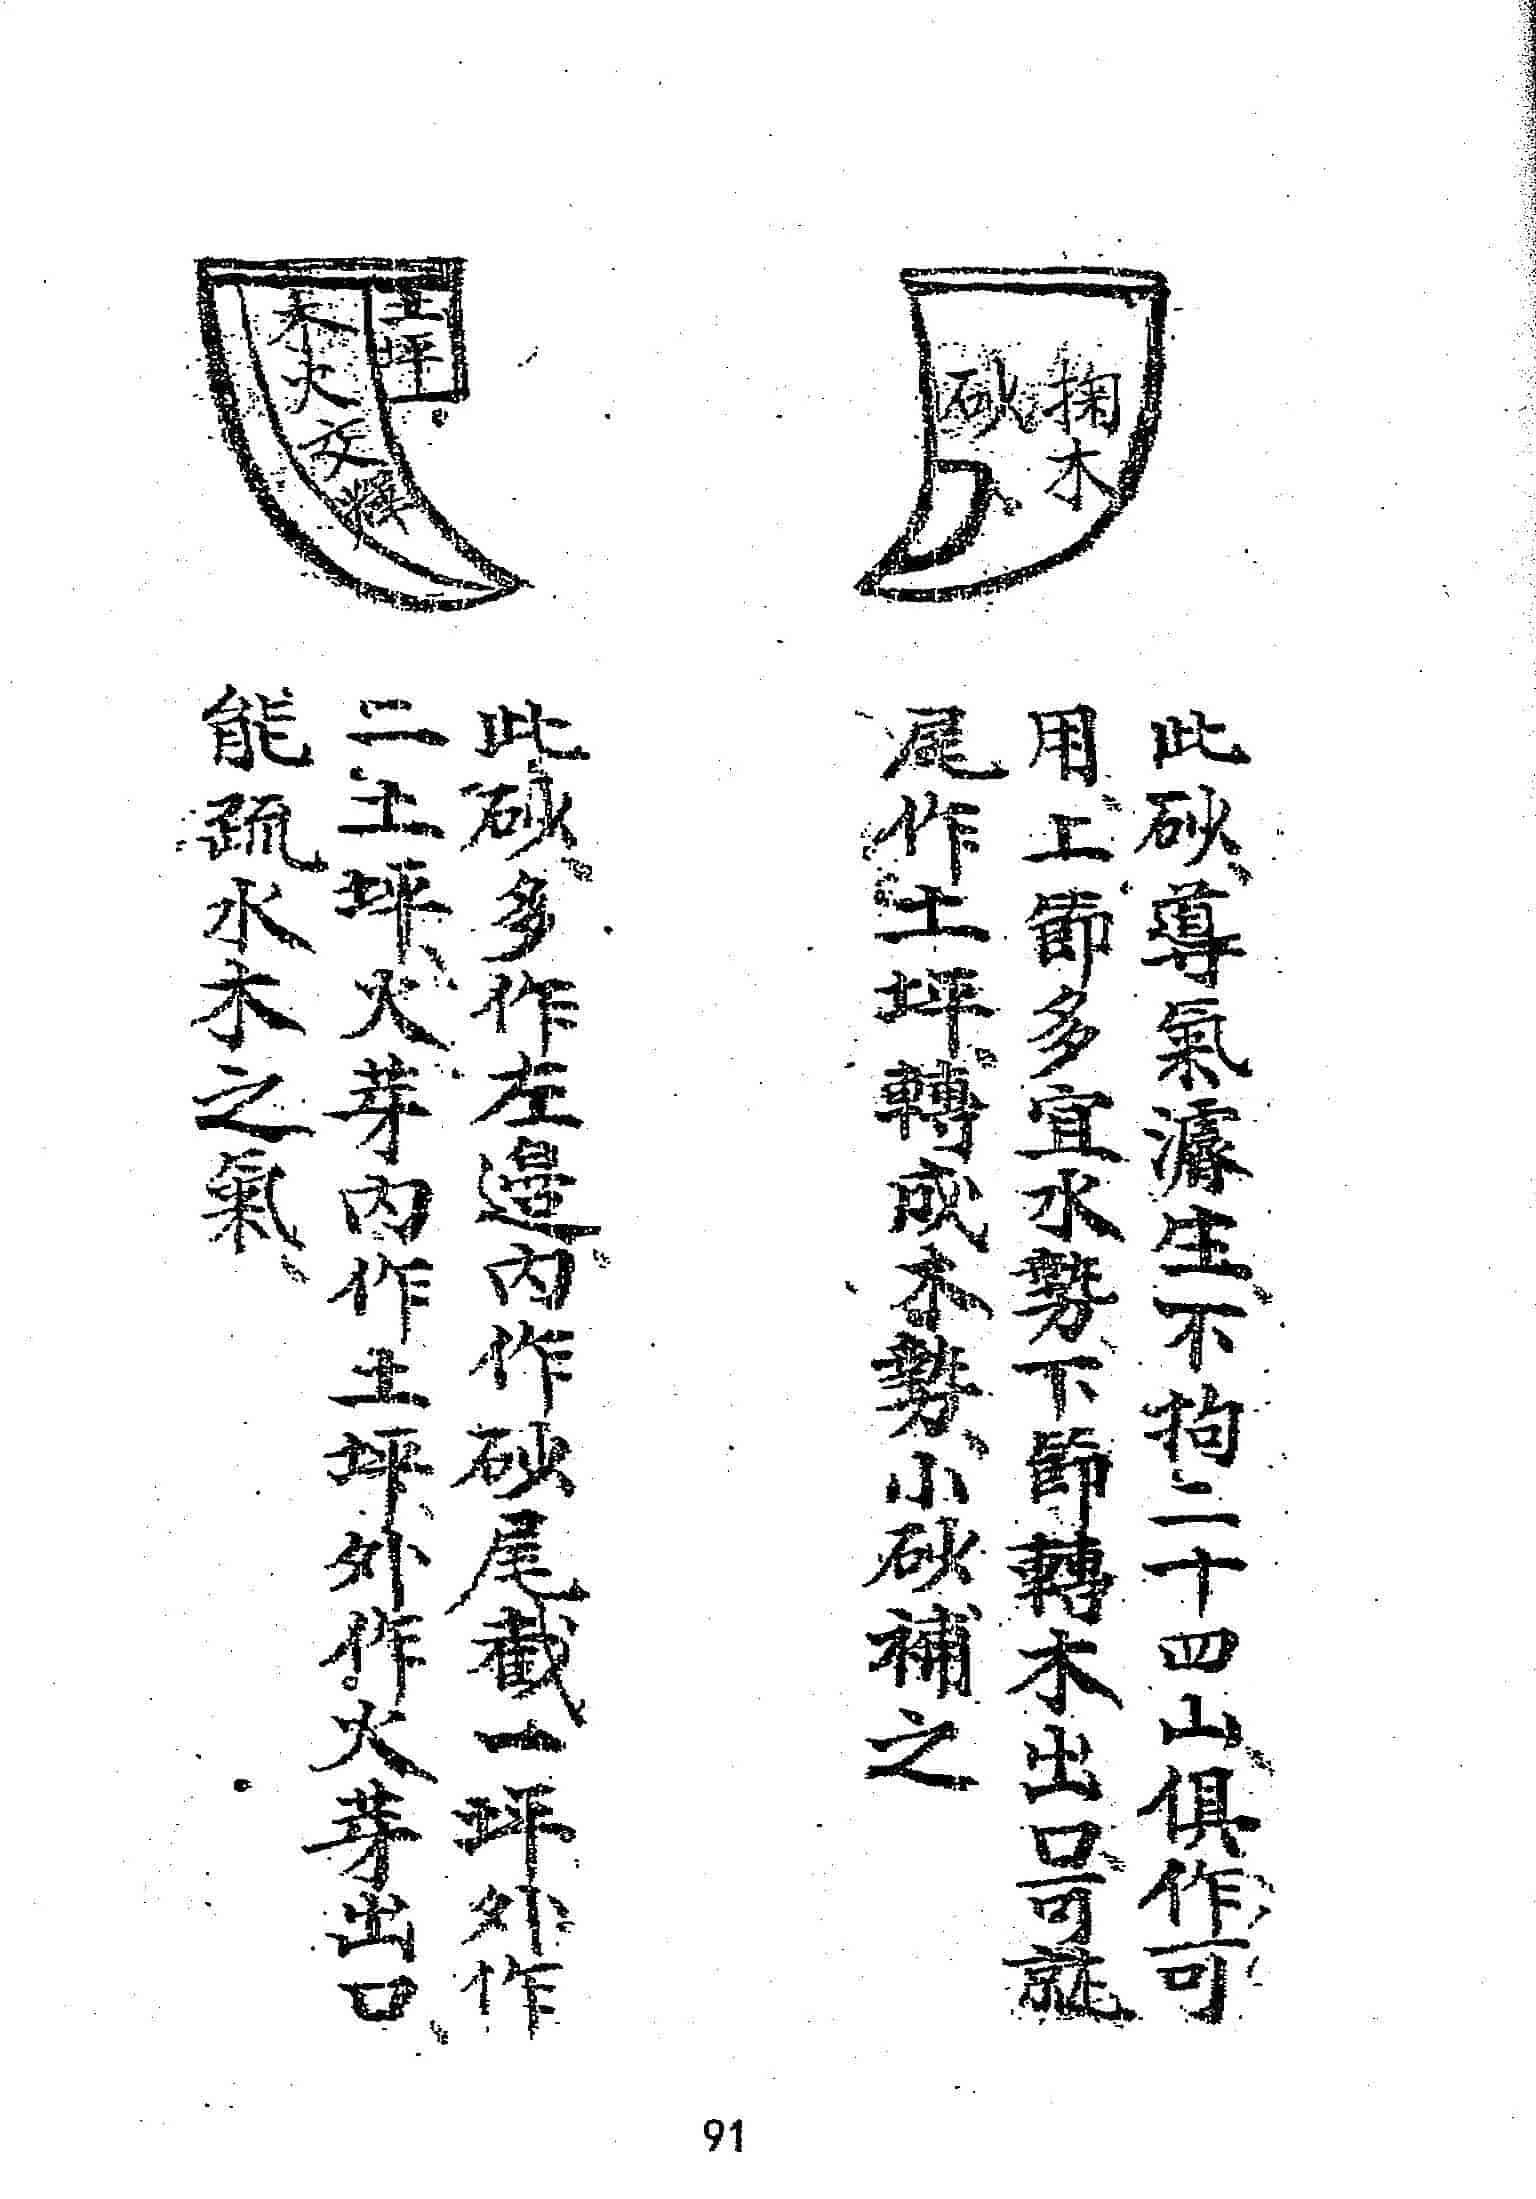 掬木
砂
此砂、尊氣濬生、不拘二十四山、俱作可
用、上節多宜水勢、下節轉木出口、可就
尾作土坪、轉成木勢、小砂補之
土坪
木火交
此砂、多作左邊、內作砂尾截一坪外作
二土坪、火芽內作土坪、外作火芽出口、
能疏水木之氣、
91